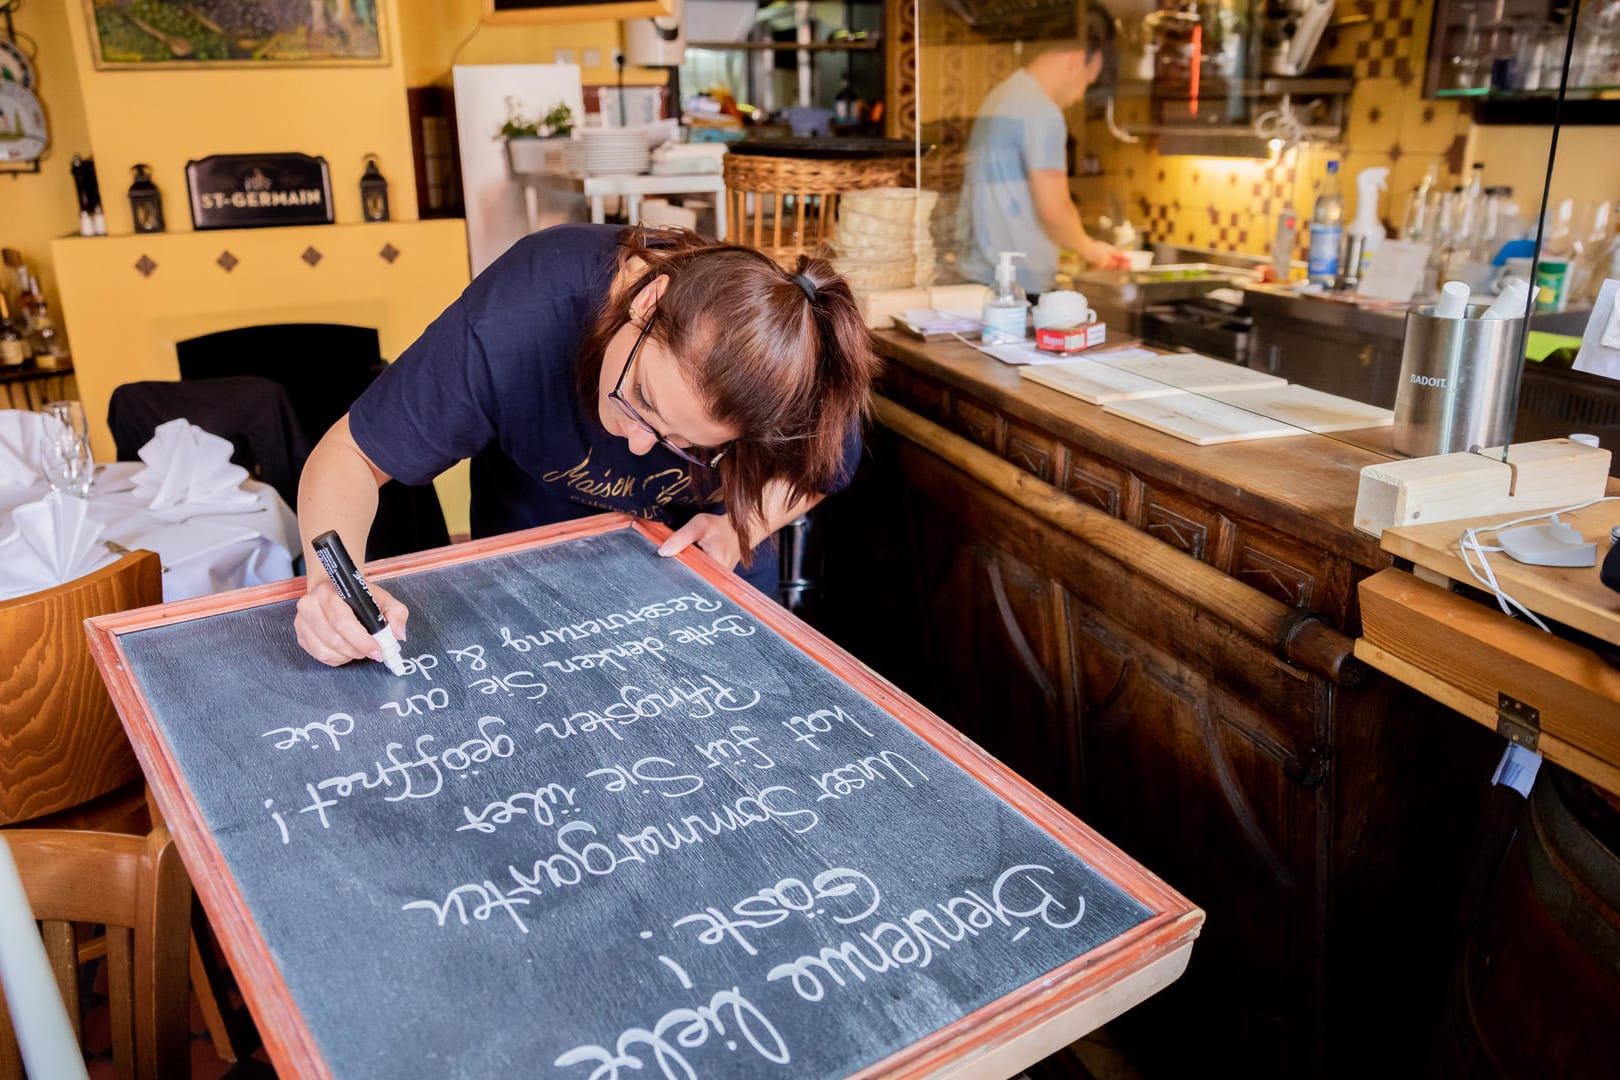 ST-GERMAIN
BADOIT
Maison
Bienvenue liebe
Gäste !
Unser Sommergarten
hat für Sie über
Pfingsten geöffnet!
Bitte denken Sie an die
Reservierung & de